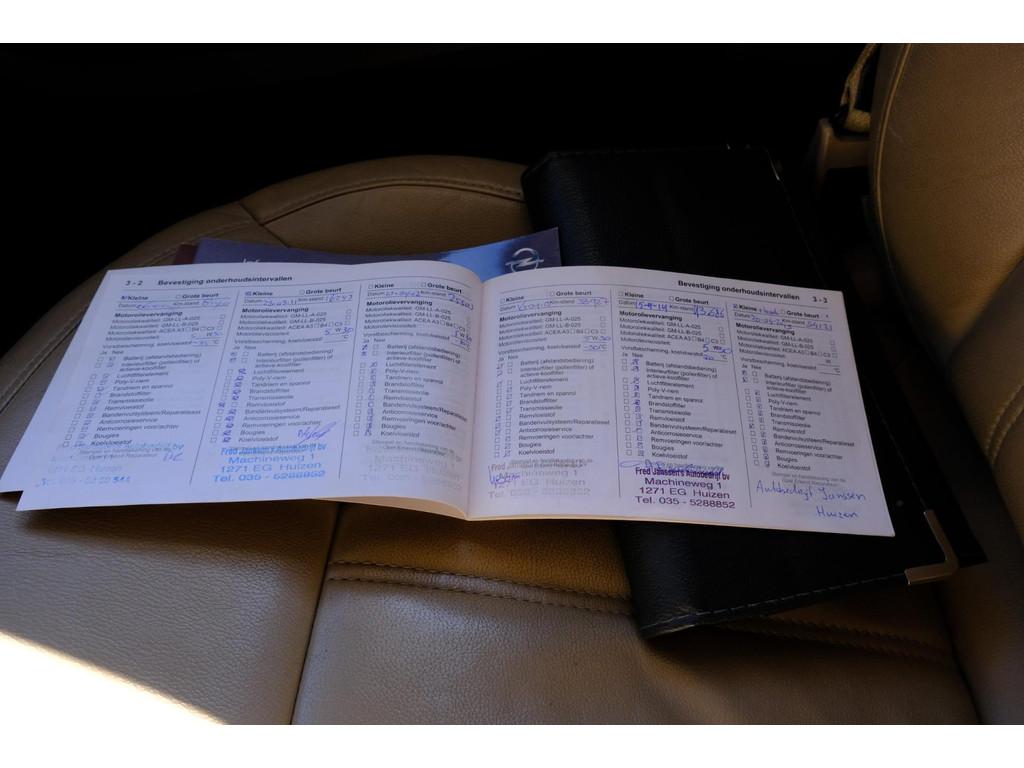 Inf
3 - 2 Bevestiging onderhoudsintervallen
Kleine Grote beurt
Datum Km-stand
Motorolievervanging
Motoroliekwaliteit: GM-LL-A-025
Motoroliekwaliteit: GM-LL-B-025
Motoroliekwaliteit: ACEA A3 B4 C3
Motorolieviscositeit:
Vorstbescherming, koelvloeistof
Ja Nee
Batterij (afstandsbediening)
Interieurfilter (pollenfilter) of
actieve-koolfilter
Luchtfilterelement
Poly-V-riem
Tandriem en spanrol
Brandstoffilter
Transmissieolie
Remvloeistof
Bandenvulsysteem/Reparatieset
Anticorrosieservice
Remvoeringen voor/achter
Bougies
Koelvloeistof
Kleine Grote beurt
Datum Km-stand
Motorolievervanging
Motoroliekwaliteit: GM-LL-A-025
Motoroliekwaliteit: GM-LL-B-025
Motoroliekwaliteit: ACEA A3 B4 C3
Motorolieviscositeit: 5 W 30
Vorstbescherming, koelvloeistof
Ja Nee
Batterij (afstandsbediening)
Interieurfilter (pollenfilter) of
actieve-koolfilter
Luchtfilterelement
Poly-V-riem
Tandriem en spanrol
Brandstoffilter
Transmissieolie
Remvloeistof
Bandenvulsysteem/Reparatieset
Anticorrosieservice
Remvoeringen voor/achter
Bougies
Koelvloeistof
Fred Janssen's Autobedrijf bv
Machineweg 1
1271 EG Huizen
Tel. 035 - 5288852
Kleine Grote beurt
Datum Km-stand
Motorolievervanging
Motoroliekwaliteit: GM-LL-A-025
Motoroliekwaliteit: GM-LL-B-025
Motoroliekwaliteit: ACEA A3 B4 C3
Motorolieviscositeit:
Vorstbescherming, koelvloeistof
Ja Nee
Batterij (afstandsbediening)
Interieurfilter (pollenfilter) of
actieve-koolfilter
Luchtfilterelement
Poly-V-riem
Tandriem en spanrol
Brandstoffilter
Transmissieolie
Remvloeistof
Bandenvulsysteem/Reparatieset
Anticorrosieservice
Remvoeringen voor/achter
Bougies
Koelvloeistof
Machineweg 1
1271 EG Huizen
Bevestiging onderhoudsintervallen 3 - 3
Kleine Grote beurt
Datum Km-stand
Motorolievervanging
Motoroliekwaliteit: GM-LL-A-025
Motoroliekwaliteit: GM-LL-B-025
Motoroliekwaliteit: ACEA A3 B4 C3
Motorolieviscositeit: 5 W 30
Vorstbescherming, koelvloeistof -30 °C
Ja Nee
Batterij (afstandsbediening)
Interieurfilter (pollenfilter) of
actieve-koolfilter
Luchtfilterelement
Poly-V-riem
Tandriem en spanrol
Brandstoffilter
Transmissieolie
Remvloeistof
Bandenvulsysteem/Reparatieset
Anticorrosieservice
Remvoeringen voor/achter
Bougies
Koelvloeistof
Machineweg 1
1271 EG Huizen
Kleine Grote beurt
Datum 5-9-14 Km-stand 43686
Motorolievervanging
Motoroliekwaliteit: GM-LL-A-025
Motoroliekwaliteit: GM-LL-B-025
Motoroliekwaliteit: ACEA A3 B4 C3
Motorolieviscositeit: 5 W 30
Vorstbescherming, koelvloeistof
Ja Nee
Batterij (afstandsbediening)
Interieurfilter (pollenfilter) of
actieve-koolfilter
Luchtfilterelement
Poly-V-riem
Tandriem en spanrol
Brandstoffilter
Transmissieolie
Remvloeistof
Bandenvulsysteem/Reparatieset
Anticorrosieservice
Remvoeringen voor/achter
Bougies
Koelvloeistof
Fred Janssen's Autobedrijf bv
Machineweg 1
1271 EG Huizen
Tel. 035 - 5288852
Kleine Grote beurt
Datum Km-stand
Motorolievervanging
Motoroliekwaliteit: GM-LL-A-025
Motoroliekwaliteit: GM-LL-B-025
Motoroliekwaliteit: ACEA A3 B4 C3
Motorolieviscositeit:
Vorstbescherming, koelvloeistof
Ja Nee
Batterij (afstandsbediening)
Interieurfilter (pollenfilter) of
actieve-koolfilter
Luchtfilterelement
Poly-V-riem
Tandriem en spanrol
Brandstoffilter
Transmissieolie
Remvloeistof
Bandenvulsysteem/Reparatieset
Anticorrosieservice
Remvoeringen voor/achter
Bougies
Koelvloeistof
Autobedrijf Janssen
Huizen